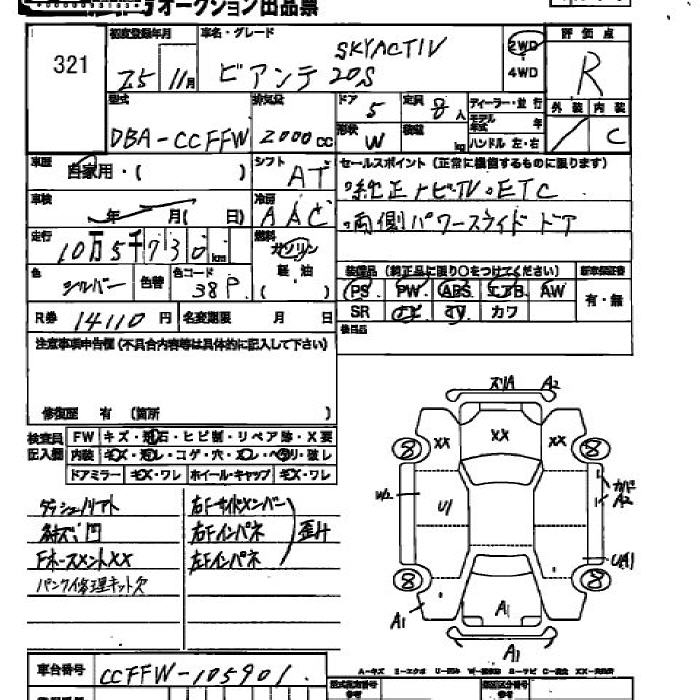 オークション出品票
321
初度登録年月
25 11月
車名・グレード
SKYACTIV
ビアンテ 20S
2WD
4WD
評価点
R
型式
DBA-CCFFW
排気量
2000cc
ドア 5
定員 8人
形状 W
積載 kg
ディーラー・並行
モデル年式 年
ハンドル 左・右
外装 内装
C
車歴
自家用・( )
シフト
AT
セールスポイント (正常に機能するものに限ります)
・純正ナビTV・ETC
・両側パワースライドドア
車検
年 月( 日)
冷房
AAC
走行
10万5千730km
燃料
ガソリン
軽油
( )
色
シルバー
色替
色コード
38P
装備品(純正品に限り○をつけてください)
PS PW ABS エアB AW
SR ナビ カワ
有・無
後日品
R券 14110円
名変期限 月 日
注意事項申告欄(不具合内容等は具体的に記入して下さい)
修復歴 有 (箇所 )
検査員記入欄
FW キズ・飛石・ヒビ割・リペア跡・X要
内装 キズ・汚レ・コゲ・穴・スレ・ヘタリ・破レ
ドアミラー キズ・ワレ ホイールキャップ キズ・ワレ
ダッシュリフト
FホースメントXX
パンク修理キット欠
右Fサイドメンバー
右Fインパネ
左Fインパネ
歪み
A2
XX XX XX
8 8
U1
A2
8 8
A1 A1
A1
車台番号
CCFFW-105901